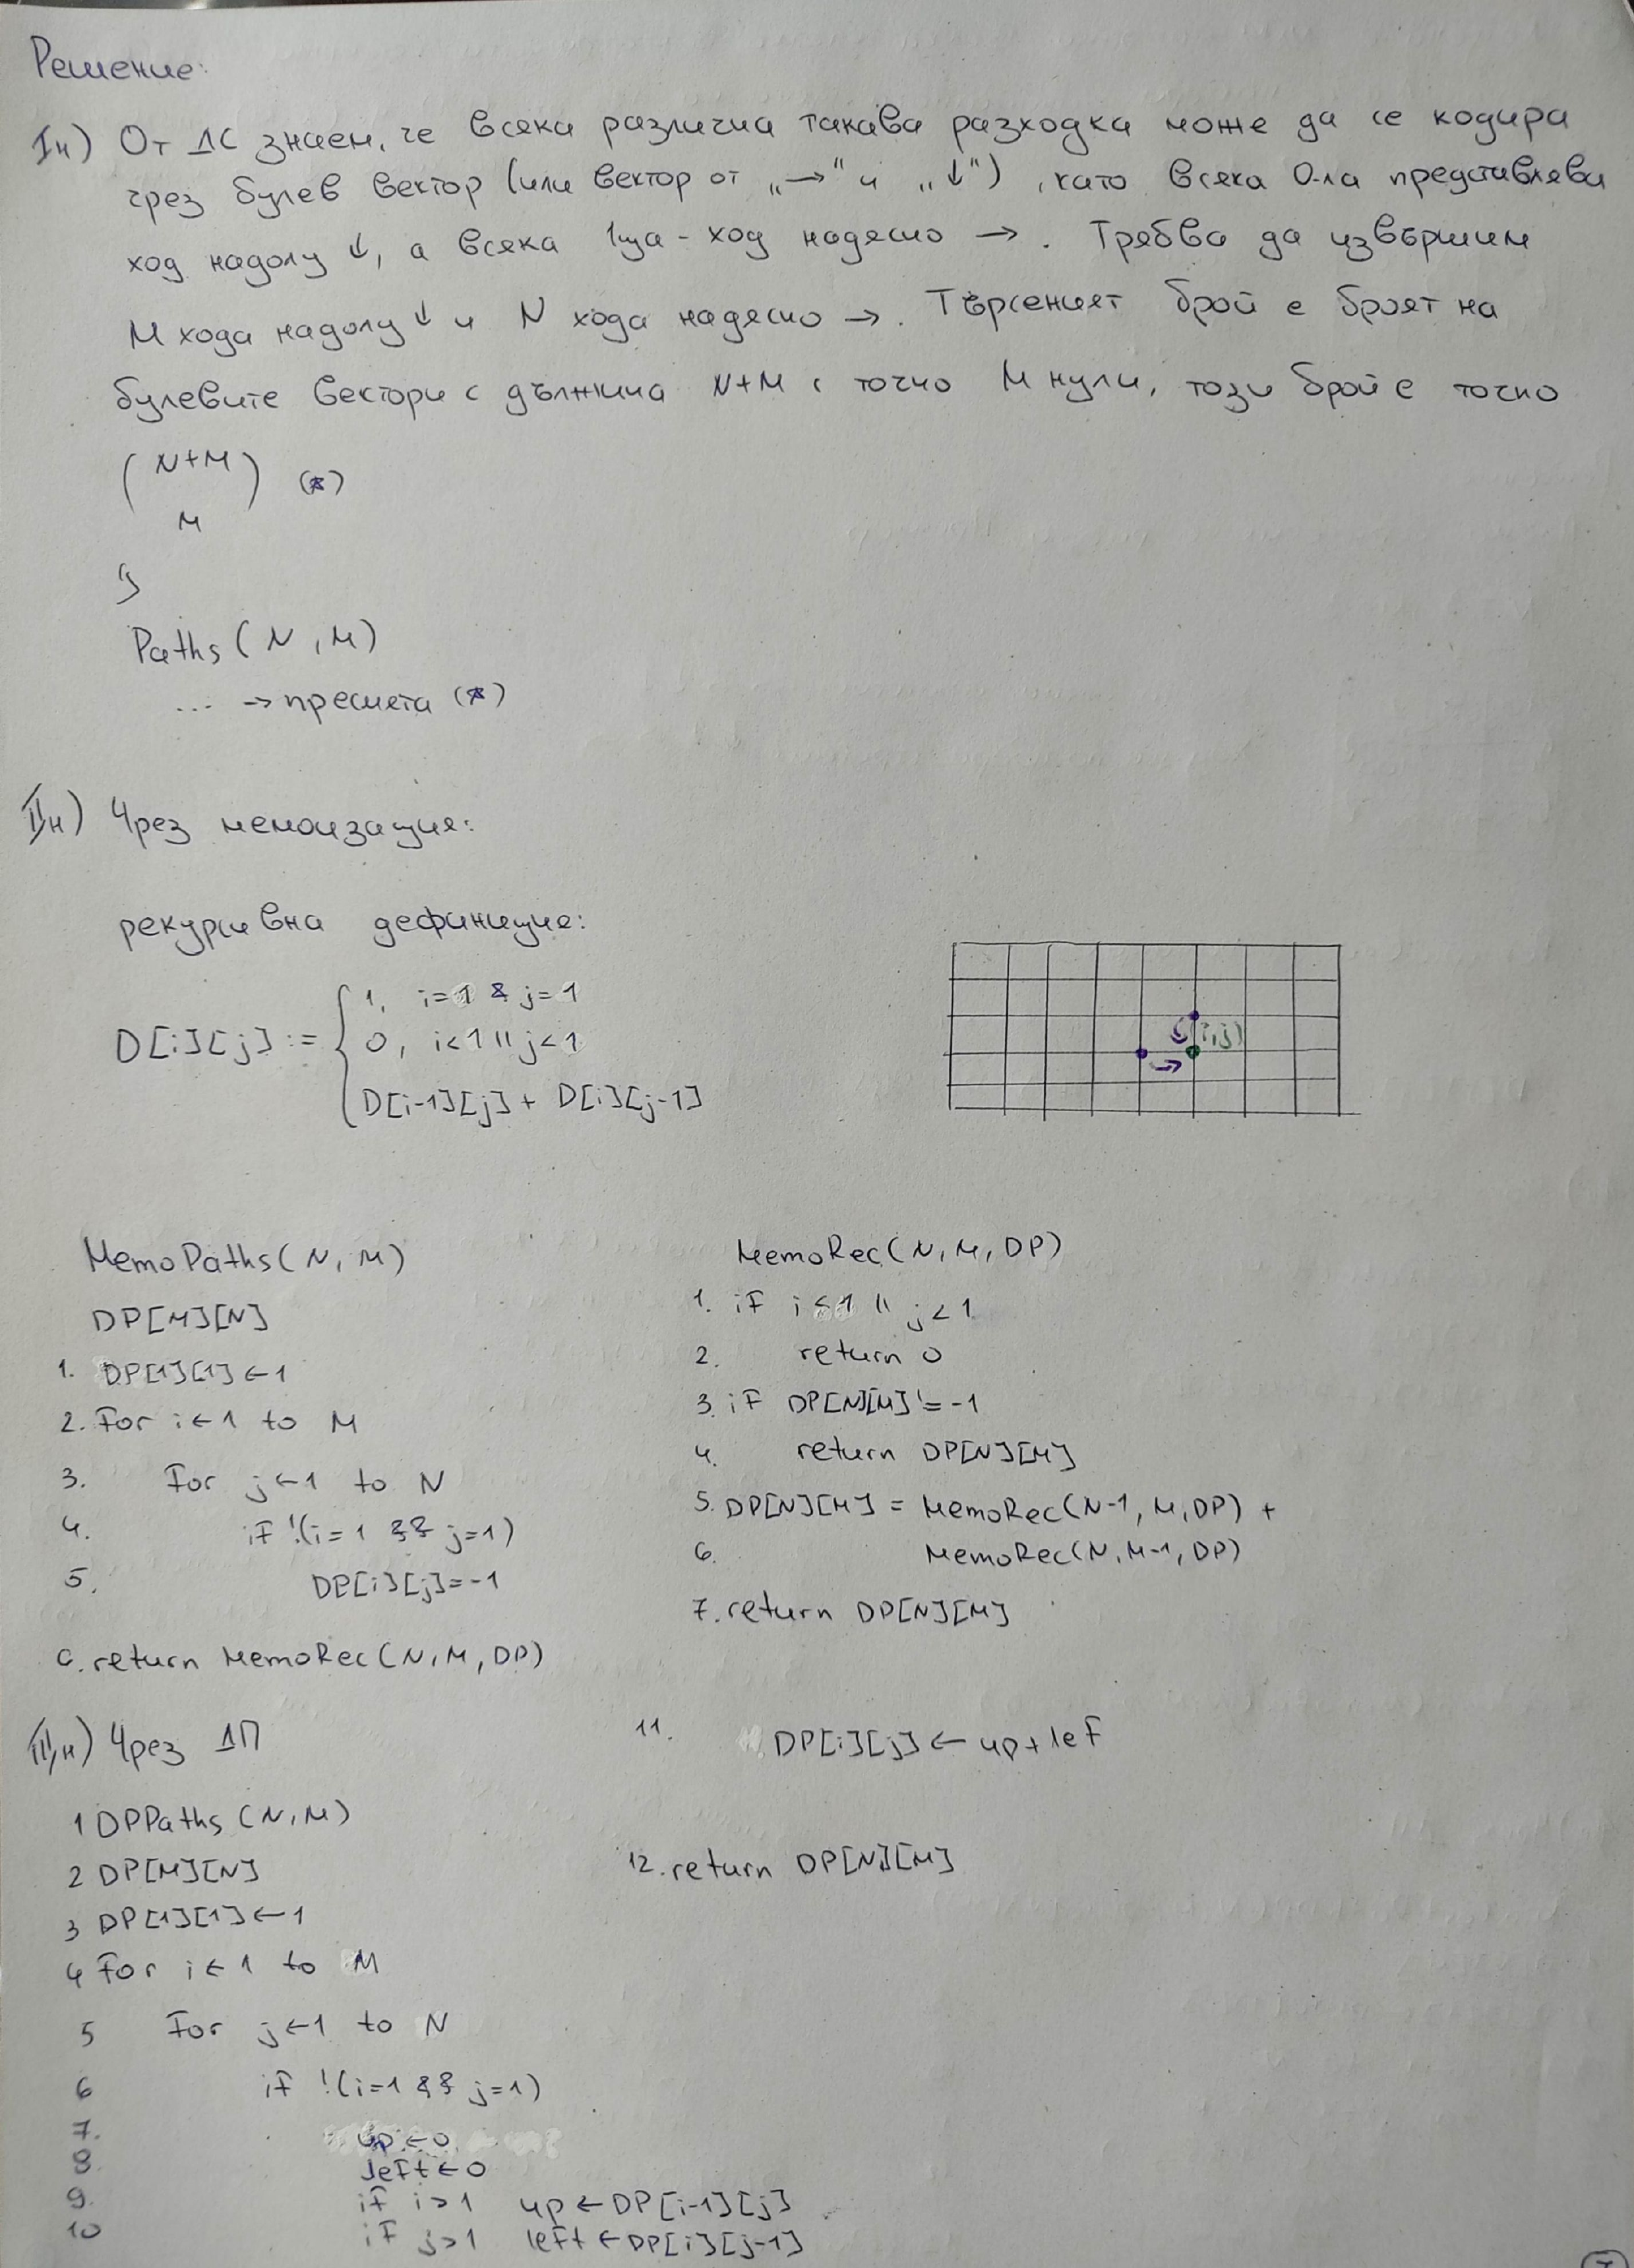 Решение:
Iн) От ДС знаем, че всяка различна такава разходка може да се кодира
чрез булев вектор (или вектор от „→" и „↓"), като всяка 0-ла представлява
ход надолу ↓, а всяка 1ца - ход надясно →. Трябва да извършим
M хода надолу ↓ и N хода надясно →. Търсеният брой е броят на
булевите вектори с дължина N+M с точно M нули, този брой е точно
( N+M ) (*)
M
Paths(N,M)
... → пресмята (*)
IIн) Чрез мемоизация:
рекурсивна дефиниция:
D[i][j] := { 1, i=1 & j=1
0, i<1 || j<1
D[i-1][j] + D[i][j-1]
(i,j)
MemoPaths(N,M)
DP[M][N]
1. DP[1][1] ← 1
2. For i ← 1 to M
3. For j ← 1 to N
4. if !(i=1 && j=1)
5. DP[i][j]=-1
6. return MemoRec(N,M,DP)
MemoRec(N,M,DP)
1. if i<1 || j<1
2. return 0
3. if DP[N][M] != -1
4. return DP[N][M]
5. DP[N][M] = MemoRec(N-1,M,DP) +
6. MemoRec(N,M-1,DP)
7. return DP[N][M]
IIIн) Чрез ДП
1 DPPaths(N,M)
2 DP[M][N]
3 DP[1][1] ← 1
4 For i ← 1 to M
5 For j ← 1 to N
6 if !(i=1 && j=1)
7. up ← 0
8. left ← 0
9. if i>1 up ← DP[i-1][j]
10 if j>1 left ← DP[i][j-1]
11. DP[i][j] ← up + lef
12. return DP[N][M]